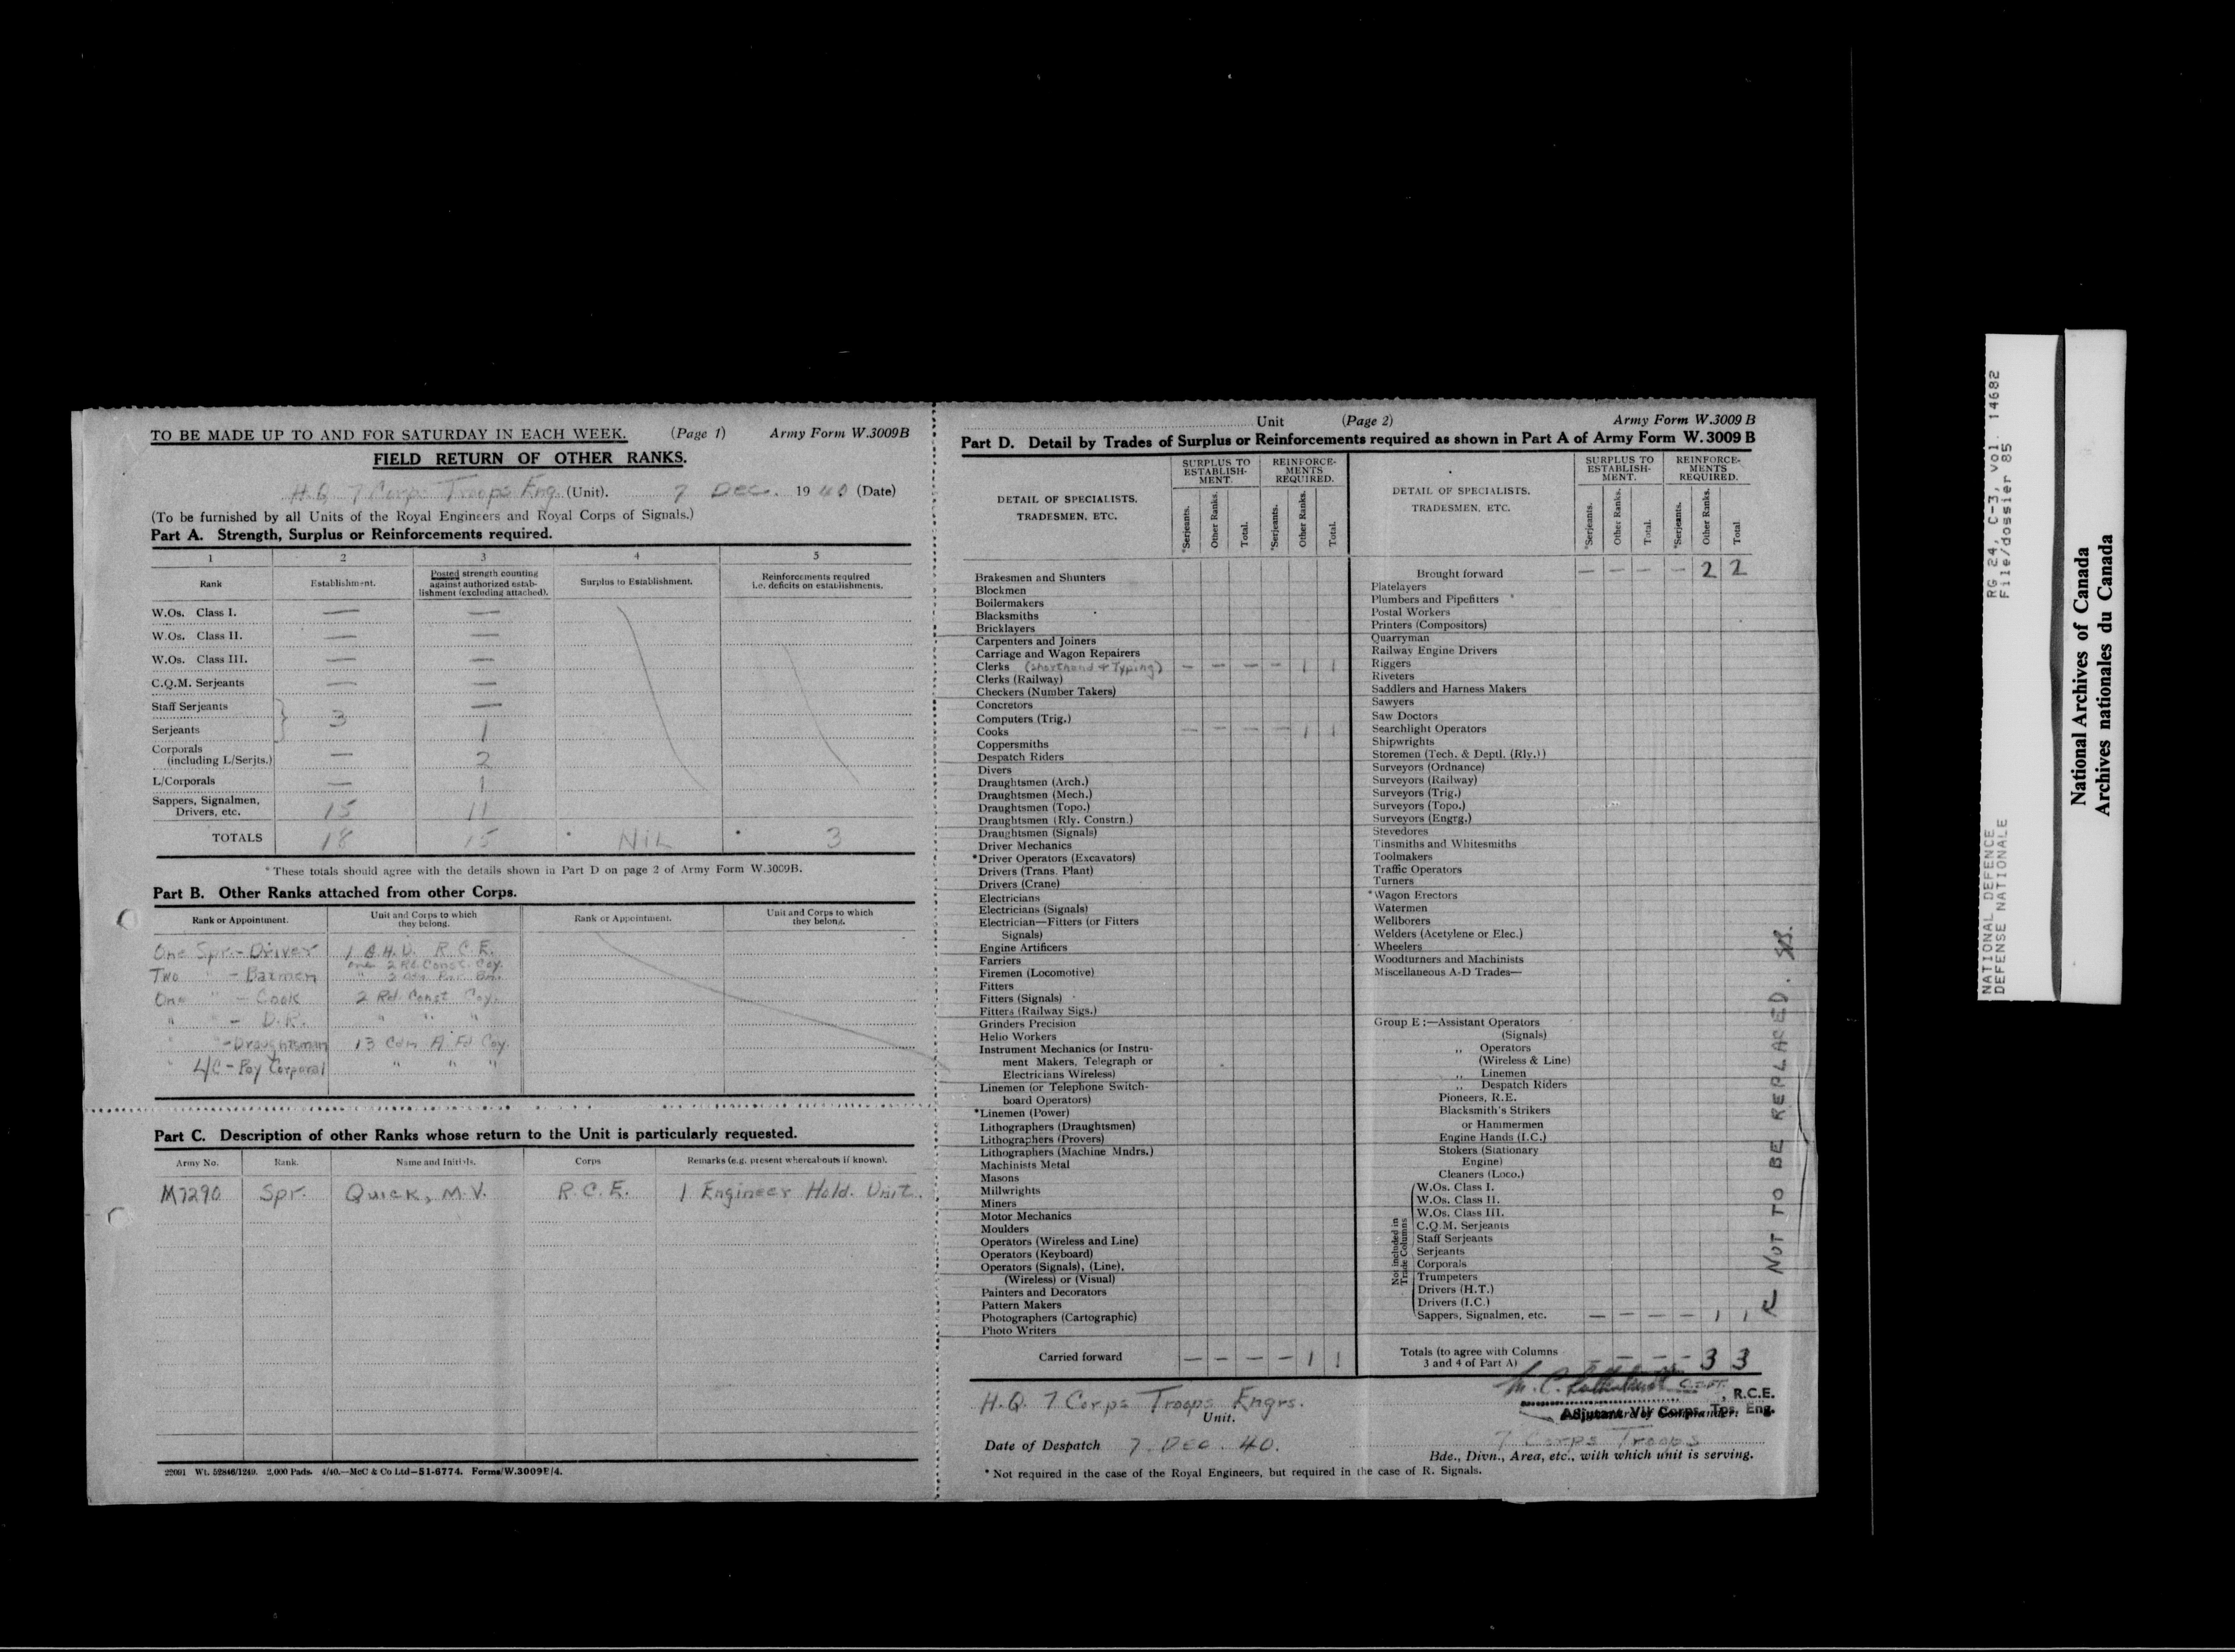 TO BE MADE UP TO AND FOR SATURDAY IN EACH WEEK. (Page 1) Army Form W.3009B
FIELD RETURN OF OTHER RANKS.
H.Q. 7 Corps Troops Eng. (Unit). 7 Dec. 1940 (Date)
(To be furnished by all Units of the Royal Engineers and Royal Corps of Signals.)
Part A. Strength, Surplus or Reinforcements required.
1 2 3 4 5
Rank Establishment. Posted strength counting against authorized estab- lishment (excluding attached). Surplus to Establishment. Reinforcements required i.e. deficits on establishments.
W.Os. Class I. — —
W.Os. Class II. — —
W.Os. Class III. — —
C.Q.M. Serjeants — —
Staff Serjeants } 3 —
Serjeants 1
Corporals
(including L/Serjts.) — 2
L/Corporals — 1
Sappers, Signalmen,
Drivers, etc. 15 11
TOTALS 18 15 * Nil * 3
* These totals should agree with the details shown in Part D on page 2 of Army Form W.3009B.
Part B. Other Ranks attached from other Corps.
Rank or Appointment. Unit and Corps to which they belong. Rank or Appointment. Unit and Corps to which they belong.
One Spr. - Driver 1 R.C.E.
one 2 Rd. Const. Coy.
Two " - Batmen
One " - Cook 2 Rd. Const. Coy.
" " - D.R. " " "
" " - Draughtsman 13 Cdn A Fd Coy.
" L/C - Pay Corporal " " "
Part C. Description of other Ranks whose return to the Unit is particularly requested.
Army No. Rank. Name and Initials. Corps Remarks (e.g. present whereabouts if known).
M7290 Spr. Quick, M.V. R.C.E. 1 Engineer Hold. Unit.
22091 Wt. 52846/1249. 2,000 Pads. 4/40.—McC & Co Ltd—51-6774. Forms/W.3009B/4.
Unit (Page 2) Army Form W.3009 B
Part D. Detail by Trades of Surplus or Reinforcements required as shown in Part A of Army Form W.3009 B
DETAIL OF SPECIALISTS, TRADESMEN, ETC. SURPLUS TO ESTABLISH- MENT. REINFORCE- MENTS REQUIRED.
*Serjeants. Other Ranks. Total. *Serjeants. Other Ranks. Total.
Brakesmen and Shunters
Blockmen
Boilermakers
Blacksmiths
Bricklayers
Carpenters and Joiners
Carriage and Wagon Repairers
Clerks (Shorthand & Typing) — — — — 1 1
Clerks (Railway)
Checkers (Number Takers)
Concretors
Computers (Trig.)
Cooks — — — — 1 1
Coppersmiths
Despatch Riders
Divers
Draughtsmen (Arch.)
Draughtsmen (Mech.)
Draughtsmen (Topo.)
Draughtsmen (Rly. Constrn.)
Draughtsmen (Signals)
Driver Mechanics
*Driver Operators (Excavators)
Drivers (Trans. Plant)
Drivers (Crane)
Electricians
Electricians (Signals)
Electrician—Fitters (or Fitters
Signals)
Engine Artificers
Farriers
Firemen (Locomotive)
Fitters
Fitters (Signals)
Fitters (Railway Sigs.)
Grinders Precision
Helio Workers
Instrument Mechanics (or Instru-
ment Makers, Telegraph or
Electricians Wireless)
Linemen (or Telephone Switch-
board Operators)
*Linemen (Power)
Lithographers (Draughtsmen)
Lithographers (Provers)
Lithographers (Machine Mndrs.)
Machinists Metal
Masons
Millwrights
Miners
Motor Mechanics
Moulders
Operators (Wireless and Line)
Operators (Keyboard)
Operators (Signals), (Line),
(Wireless) or (Visual)
Painters and Decorators
Pattern Makers
Photographers (Cartographic)
Photo Writers
Carried forward — — — — 1 1
DETAIL OF SPECIALISTS, TRADESMEN, ETC. SURPLUS TO ESTABLISH- MENT. REINFORCE- MENTS REQUIRED.
*Serjeants. Other Ranks. Total. *Serjeants. Other Ranks. Total.
Brought forward — — — — 2 2
Platelayers
Plumbers and Pipefitters
Postal Workers
Printers (Compositors)
Quarryman
Railway Engine Drivers
Riggers
Riveters
Saddlers and Harness Makers
Sawyers
Saw Doctors
Searchlight Operators
Shipwrights
Storemen (Tech. & Deptl. (Rly.))
Surveyors (Ordnance)
Surveyors (Railway)
Surveyors (Trig.)
Surveyors (Topo.)
Surveyors (Engrg.)
Stevedores
Tinsmiths and Whitesmiths
Toolmakers
Traffic Operators
Turners
*Wagon Erectors
Watermen
Wellborers
Welders (Acetylene or Elec.)
Wheelers
Woodturners and Machinists
Miscellaneous A-D Trades—
Group E :—Assistant Operators
(Signals)
,, Operators
(Wireless & Line)
,, Linemen
,, Despatch Riders
Pioneers, R.E.
Blacksmith's Strikers
or Hammermen
Engine Hands (I.C.)
Stokers (Stationary
Engine)
Cleaners (Loco.)
Not included in Trade Columns
W.Os. Class I.
W.Os. Class II.
W.Os. Class III.
C.Q.M. Serjeants
Staff Serjeants
Serjeants
Corporals
Trumpeters
Drivers (H.T.)
Drivers (I.C.)
Sappers, Signalmen, etc. — — — — 1 1
NOT TO BE REPLACED.
Totals (to agree with Columns
3 and 4 of Part A) — — — — 3 3
H.Q. 7 Corps Troops Engrs.
Unit.
Capt. , R.C.E.
Adjutant VII Corps. Tps. Eng.
Date of Despatch 7 Dec. 40. 7 Corps Troops
Bde., Divn., Area, etc., with which unit is serving.
* Not required in the case of the Royal Engineers, but required in the case of R. Signals.
NATIONAL DEFENCE RG 24, C-3, vol. 14682
DEFENSE NATIONALE File/dossier 85
National Archives of Canada
Archives nationales du Canada